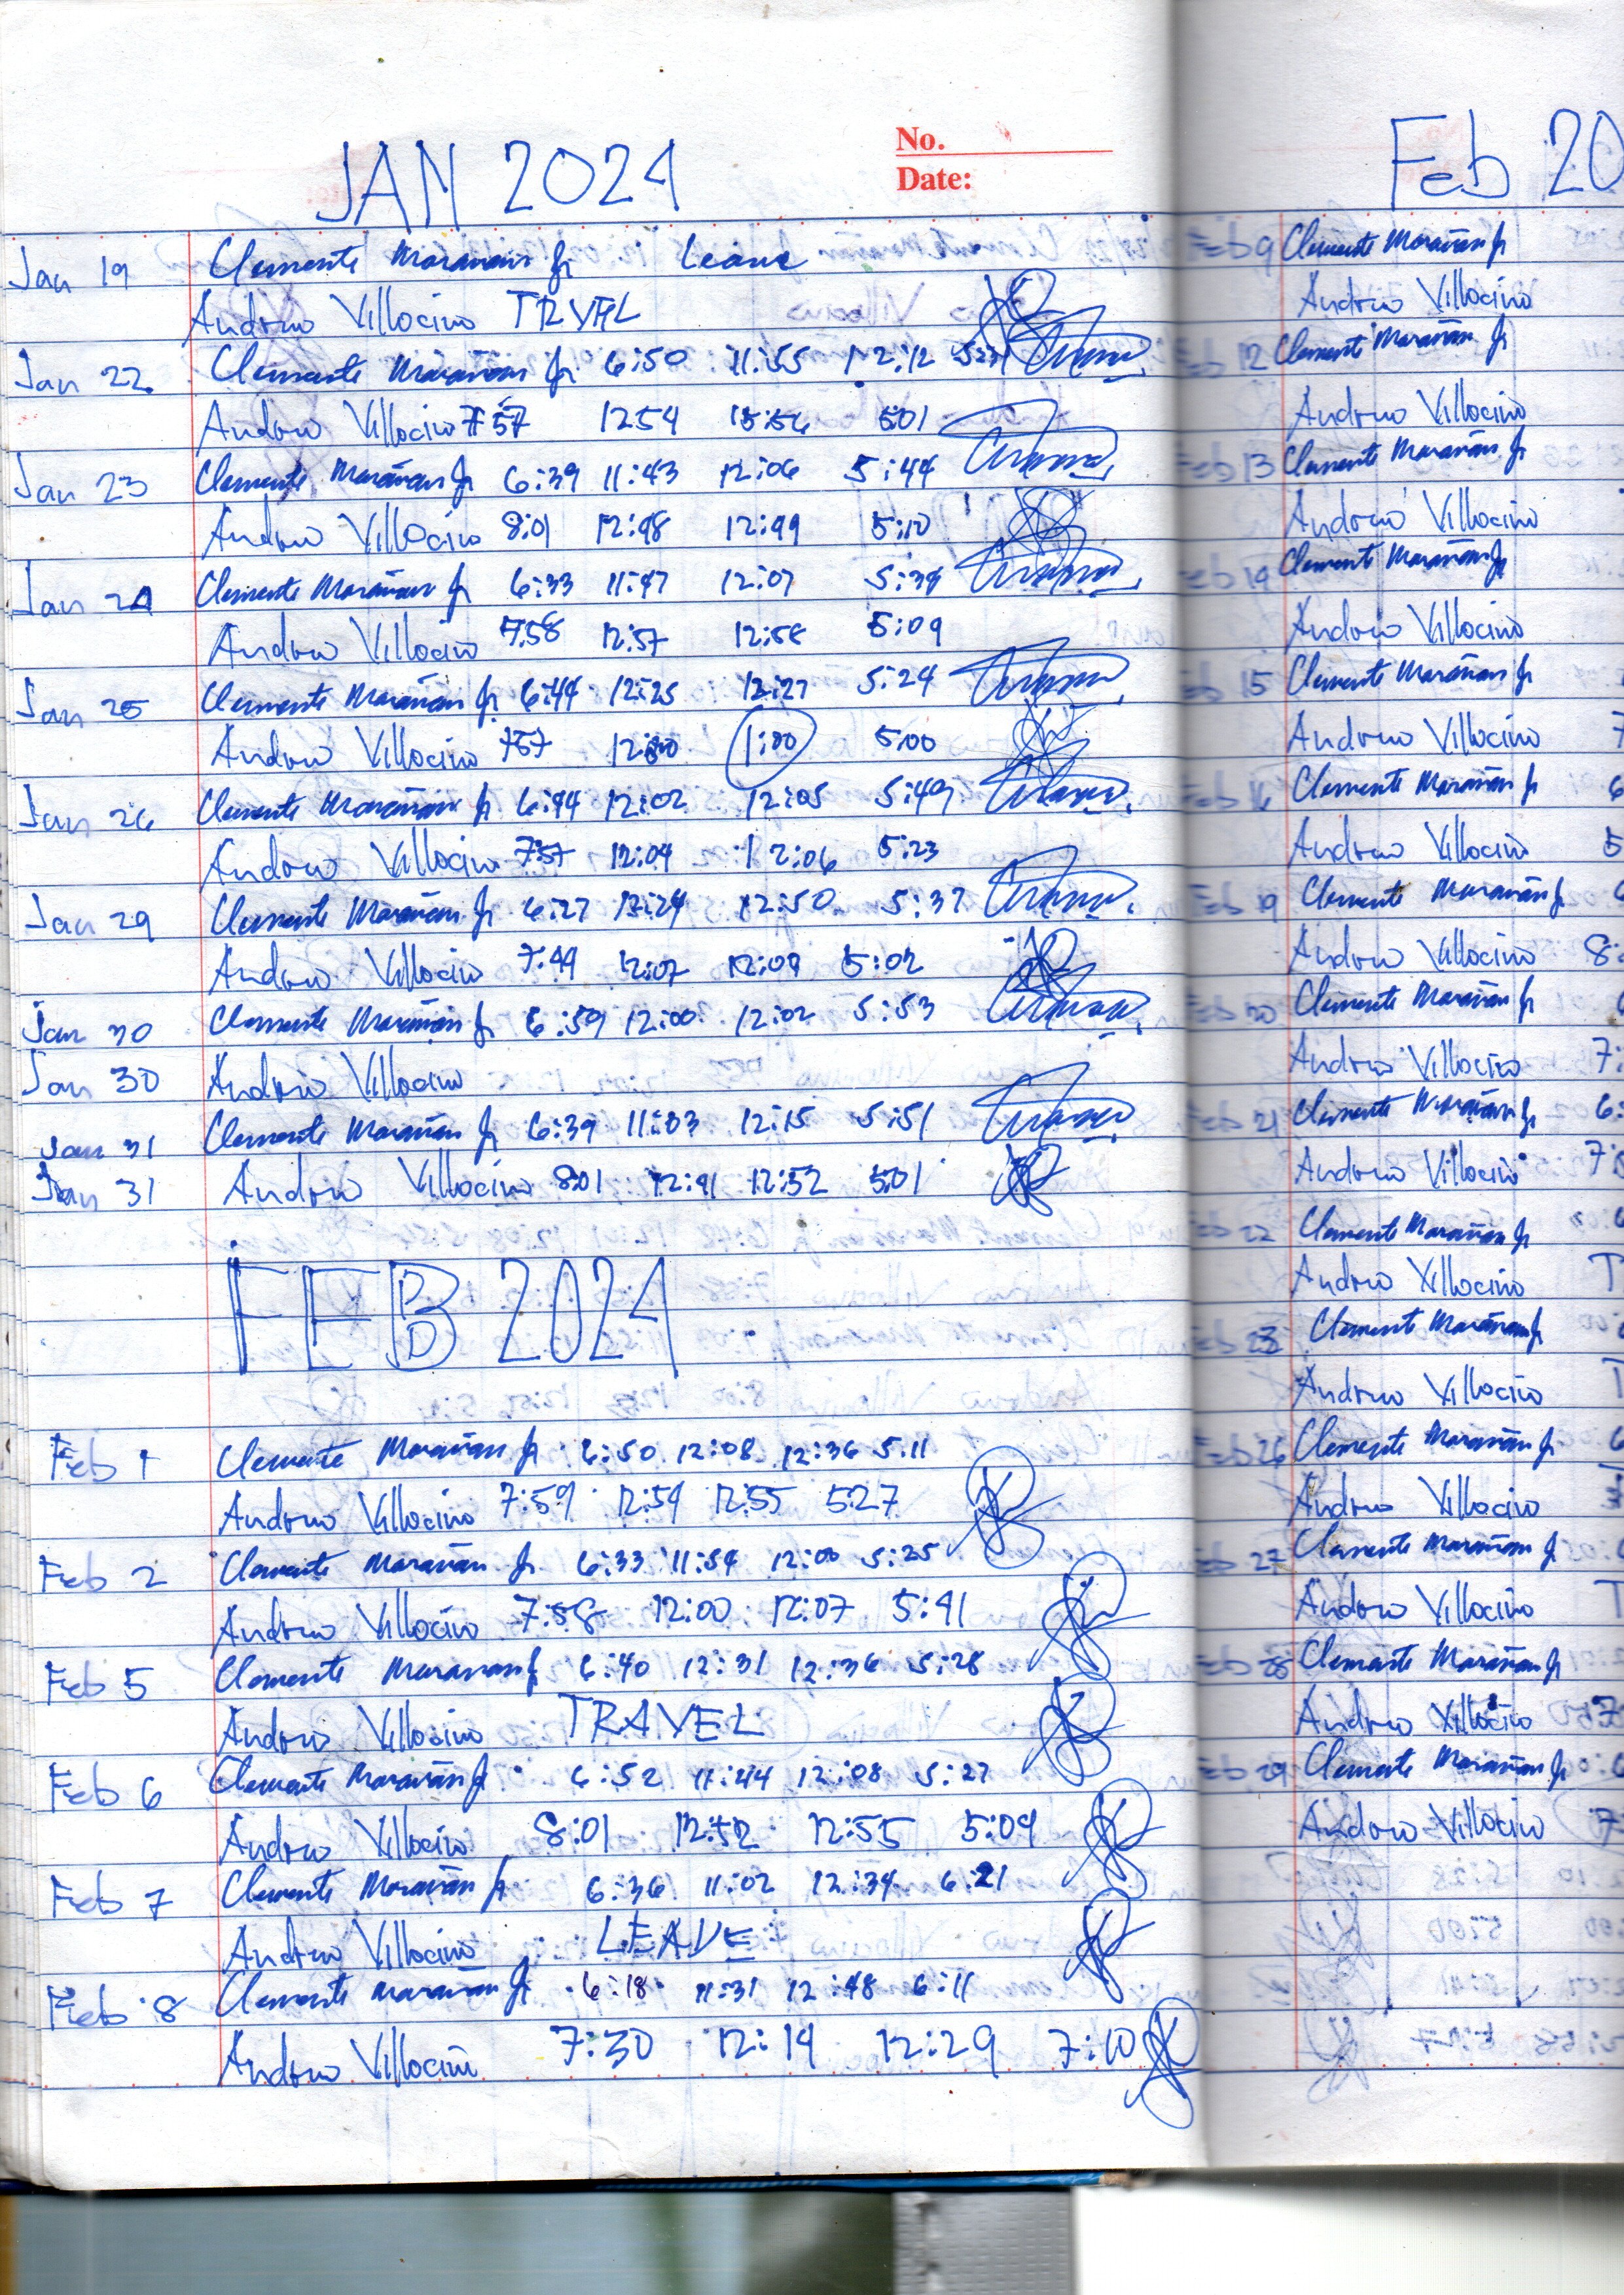 JAN 2024
No.
Date:
Jan 19 Clemente Marañan Jr Leave
Andrew Villocino TRVEL
Jan 22 Clemente Marañan Jr 6:50 11:55 12:12
Andrew Villocino 7:57 1254 501
Jan 23 Clemente Marañan Jr 6:39 11:43 12:06 5:44
Andrew Villocino 8:01 12:48 12:49 5:10
Jan 24 Clemente Marañan Jr 6:33 11:47 12:07 5:34
Andrew Villocino 7:58 12:57 12:58 5:09
Jan 25 Clemente Marañan Jr 6:44 12:25 12:27 5:24
Andrew Villocino 757 1:00 5:00
Jan 26 Clemente Marañan Jr 6:44 12:02 12:05 5:49
Andrew Villocino 7:57 12:04 12:06 5:23
Jan 29 Clemente Marañan Jr 6:27 12:24 12:50 5:37
Andrew Villocino 7:49 12:07 12:09 5:02
Jan 30 Clemente Marañan Jr 6:59 12:00 12:02 5:53
Jan 30 Andrew Villocino
Jan 31 Clemente Marañan Jr 6:39 11:03 12:15 5:51
Jan 31 Andrew Villocino 8:01 12:41 12:52 5:01
FEB 2024
Feb 1 Clemente Marañan Jr 6:50 12:08 12:36 5.11
Andrew Villocino 7:59 12:54 12:55 5:27
Feb 2 Clemente Marañan Jr 6:33 11:54 12:00 5:25
Andrew Villocino 7:58 12:00 12:07 5:41
Feb 5 Clemente Marañan Jr 6:40 12:31 12:36 5:28
Andrew Villocino TRAVEL
Feb 6 Clemente Marañan Jr 6:52 11:44 12:08 5:27
Andrew Villocino 8:01 12:52 12:55 5:09
Feb 7 Clemente Marañan Jr 6:36 11:02 12:34 6:21
Andrew Villocino LEAVE
Feb 8 Clemente Marañan Jr 6:18 11:31 12:48 6:11
Andrew Villocino 7:30 12:14 12:29 7:10
Feb 20
Feb 9 Clemente Marañan Jr
Andrew Villocino
Feb 12 Clemente Marañan Jr
Andrew Villocino
Feb 13 Clemente Marañan Jr
Andrew Villocino
Feb 14 Clemente Marañan Jr
Andrew Villocino
Feb 15 Clemente Marañan Jr
Andrew Villocino 7
Feb 16 Clemente Marañan Jr 6
Andrew Villocino 5
Feb 19 Clemente Marañan Jr 6
Andrew Villocino 8:
Feb 20 Clemente Marañan Jr
Andrew Villocino 7:
Feb 21 Clemente Marañan Jr 6:
Andrew Villocino 7:
Feb 22 Clemente Marañan Jr
Andrew Villocino T
Feb 23 Clemente Marañan Jr
Andrew Villocino T
Feb 26 Clemente Marañan Jr
Andrew Villocino
Feb 27 Clemente Marañan Jr
Andrew Villocino T
Feb 28 Clemente Marañan Jr
Andrew Villocino 7
Feb 29 Clemente Marañan Jr
Andrew Villocino 7